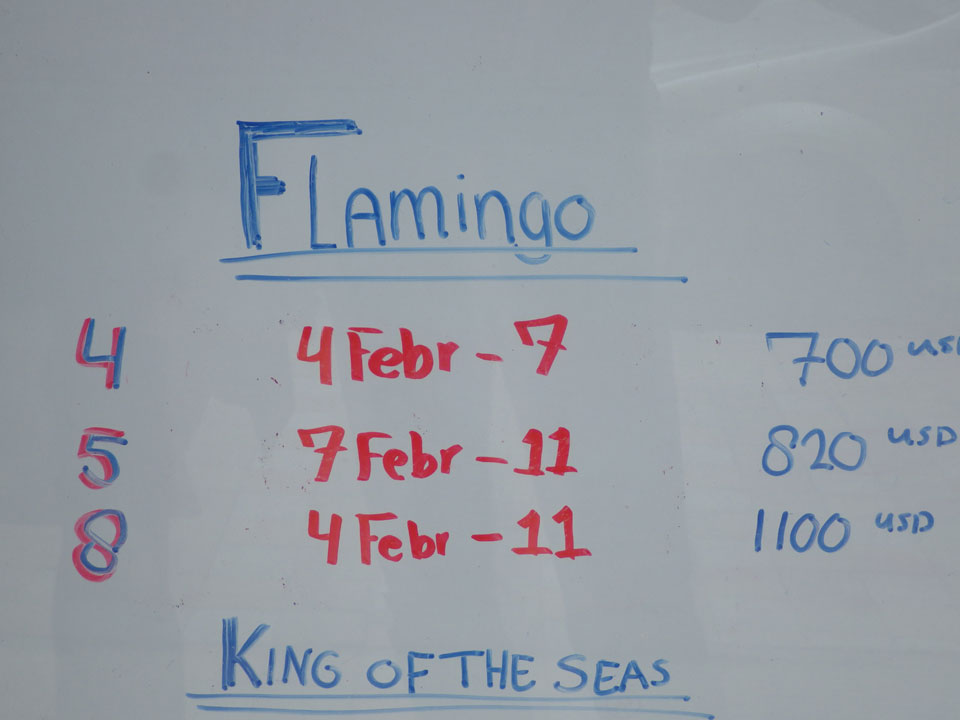 FLamingo
4 4 Febr - 7 700 USD
5 7 Febr - 11 820 USD
8 4 Febr - 11 1100 USD
KING OF THE SEAS